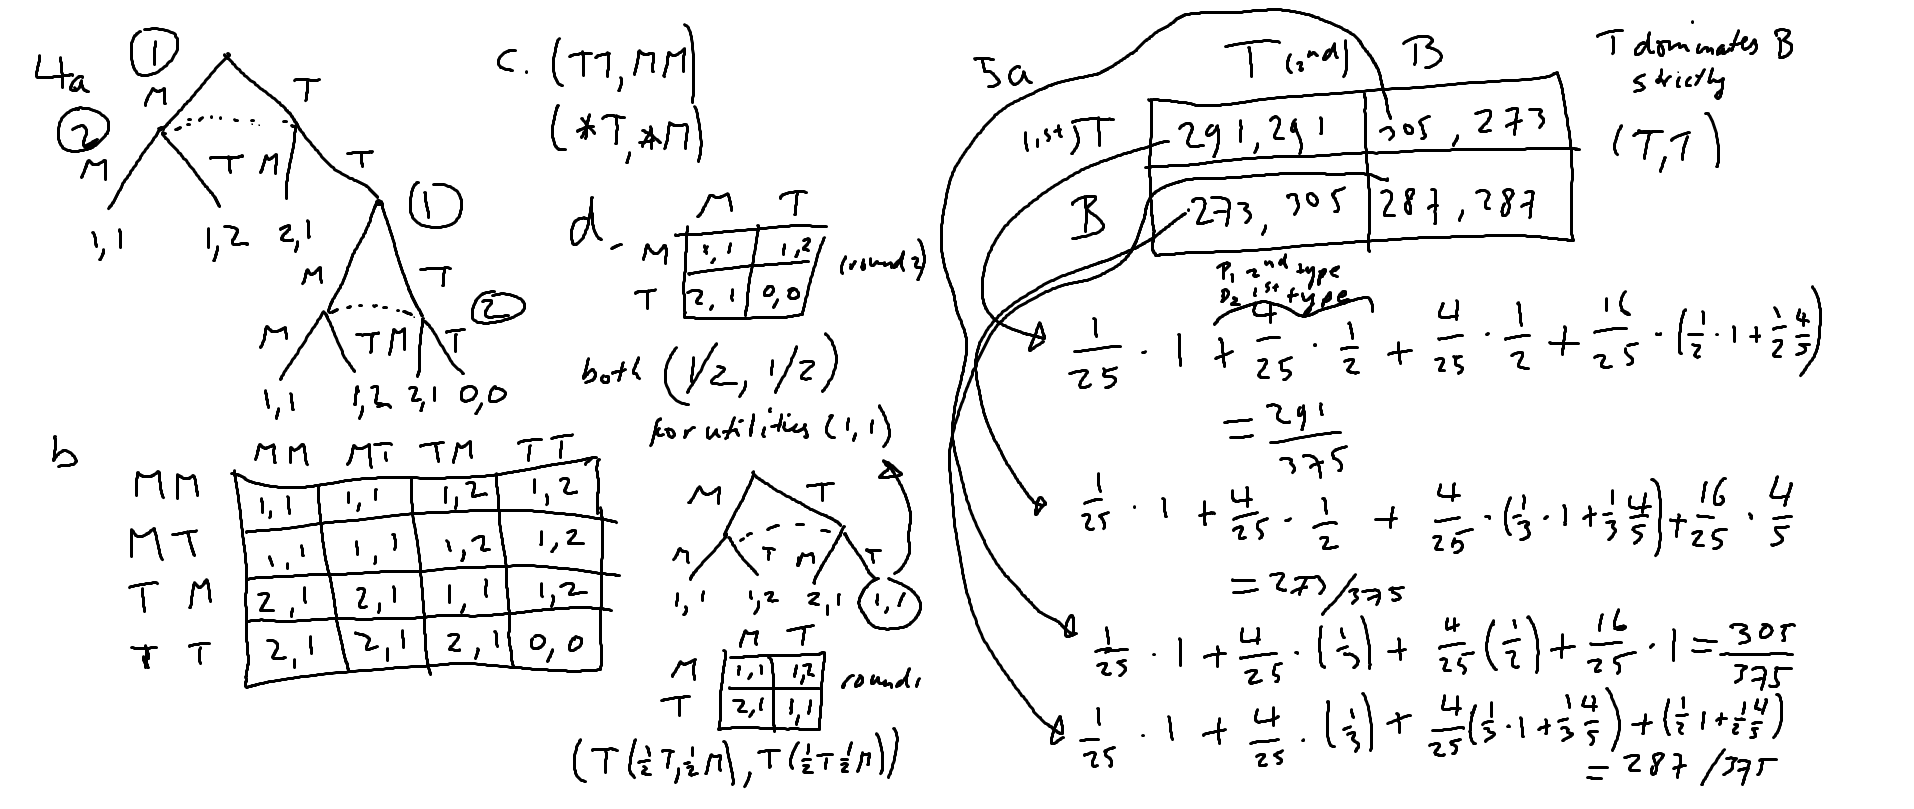 4a
1
M T
2
M T M T
1,1 1,2 2,1
1
M T
2
M T M T
1,1 1,2 2,1 0,0
b
MM MT TM TT
MM 1,1 1,1 1,2 1,2
MT 1,1 1,1 1,2 1,2
TM 2,1 2,1 1,1 1,2
TT 2,1 2,1 2,1 0,0
c. (TT, MM)
(*T, *M)
d.
M T
M 1,1 1,2 (round 2)
T 2,1 0,0
both (1/2, 1/2)
for utilities (1,1)
M T
M T M T
1,1 1,2 2,1 1,1
M T
M 1,1 1,2
T 2,1 1,1
round 1
(T(½T,½M), T(½T½M))
5a
T (2nd) B
(1st) T 291, 291 305, 273
B 273, 305 287, 287
T dominates B
strictly
(T,T)
P1 2nd type
P2 1st type
1/25 · 1 + 4/25 · 1/2 + 4/25 · 1/2 + 16/25 · (1/2 · 1 + 1/2 4/5)
= 291/375
1/25 · 1 + 4/25 · 1/2 + 4/25 · (1/3 · 1 + 1/3 4/5) + 16/25 · 4/5
= 273/375
1/25 · 1 + 4/25 · (1/3) + 4/25 (1/2) + 16/25 · 1 = 305/375
1/25 · 1 + 4/25 · (1/3) + 4/25 (1/3 · 1 + 1/3 4/5) + (1/2 1 + 1/2 4/5)
= 287/375